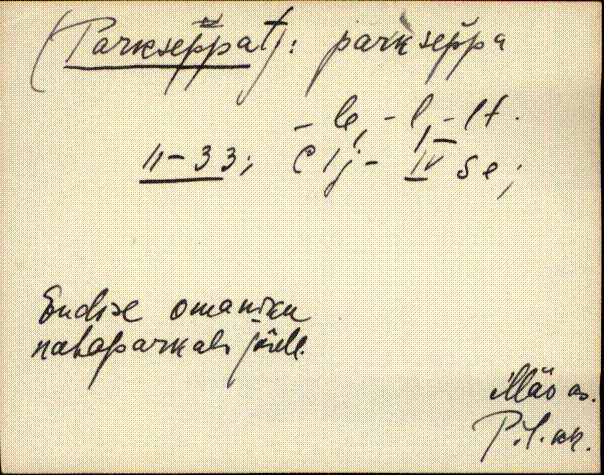 (Parkseppat): parkseppa
-le, -l, -lt.
11-33; C Ij- IV Se;
Endise omaniku
nahaparkali järele.
Mäo as.
P.-J. kh.